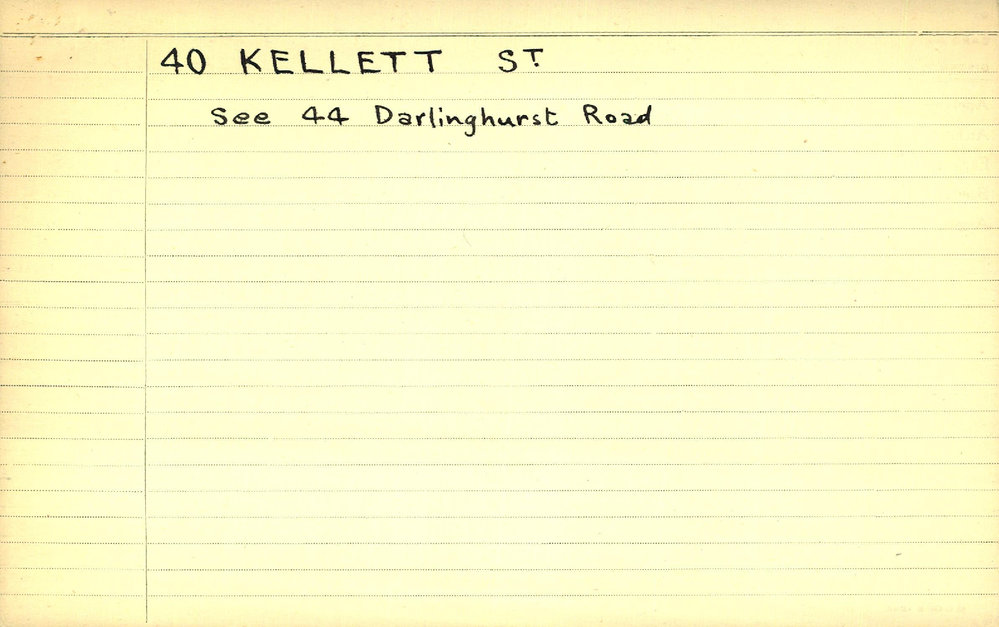 40 KELLETT ST
See 44 Darlinghurst Road